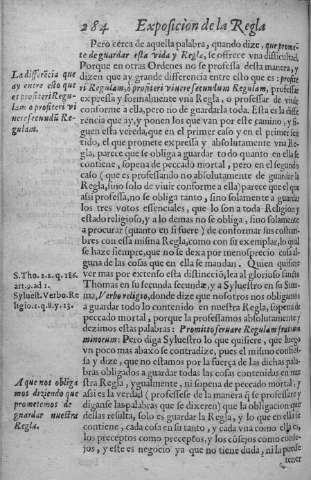 284 Exposicion de la Regla
Pero cerca de aquella palabra, quando dize, que prome-
te de guardar esta vida y Regla, se offrece vna dificultad.
Porque en otras Ordenes no se professa desta manera, y
dizen que ay grande differencia entre esto que es: profite
ri Regulam, ò profiteri viuere secundum Regulam, professar
expressa y formalmente vna Regla, o professar de viuir
conforme a ella, pero no de guardarla toda. Esta es la diffe-
rencia que ay, y ponen los que van por este camino, y si-
guen esta vereda, que en el primer caso y en el primer sen
tido, el que promete expressa y absolutamente vna Re-
gla, parece que se obliga a guardar todo quanto en ella se
contiene, sopena de peccado mortal, pero en el segundo
caso (que es professando no absolutamente de guardar la
Regla, sino solo de viuir conforme a ella) parece que el que
assi professa, no se obliga tanto, sino solamente a guardar
los tres votos essenciales, que lo son a toda Religion y
estado religioso, y a lo demas no se obliga, sino solamente
a procurar (quanto en si fuere) de conformar sus costum-
bres con essa misma Regla, como con su exemplar, lo qual
se haze siempre, que no se dexa por menosprecio cosa al-
guna de las cosas que en ella se mandan. Quien quisiere
ver mas por extenso esta distinctiõ, lea al glorioso sancto
Thomas en su secunda secundæ, y a Syluestro en su Sum-
ma, Verbo religio, donde dize que nosotros nos obligamos
a guardar todo lo contenido en nuestra Regla, sopena de
peccado mortal, porque la professamos absolutamente y
dezimos estas palabras: Promitto seruare Regulam fratrum
minorum: Pero diga Syluestro lo que quisiere, que luego
vn poco mas abaxo se contradize, pues el mismo confies-
sa y dize, que no estamos por la fuerça de las dichas pala-
bras obligados a guardar todas las cosas contenidas en nue
stra Regla, ygualmente, ni sopena de peccado mortal, y
assi es la verdad (professese de la manera q̃ se professare y
diganse las palabras que se dixeren) que la obligacion que
dellas resulta, solo es guardar la Regla, y lo que en ella se
contiene, cada cosa en su tanto, y cada vna como ella es,
los preceptos como preceptos, y los cõsejos como conse-
jos, y este es negocio ya que no tiene duda, ni la puede
tener
La differẽcia que
ay entre esto que
es profiteri Regu-
lam o profiteri vi
uere secundũ Re-
gulam.
S. Tho. 2.2. q. 186.
art. 9. ad 1.
Syluest. Verbo. Re
ligio. 2. q. 8. y. 13.
A que nos obliga
mos diziendo que
prometemos de
guardar nuestra
Regla.